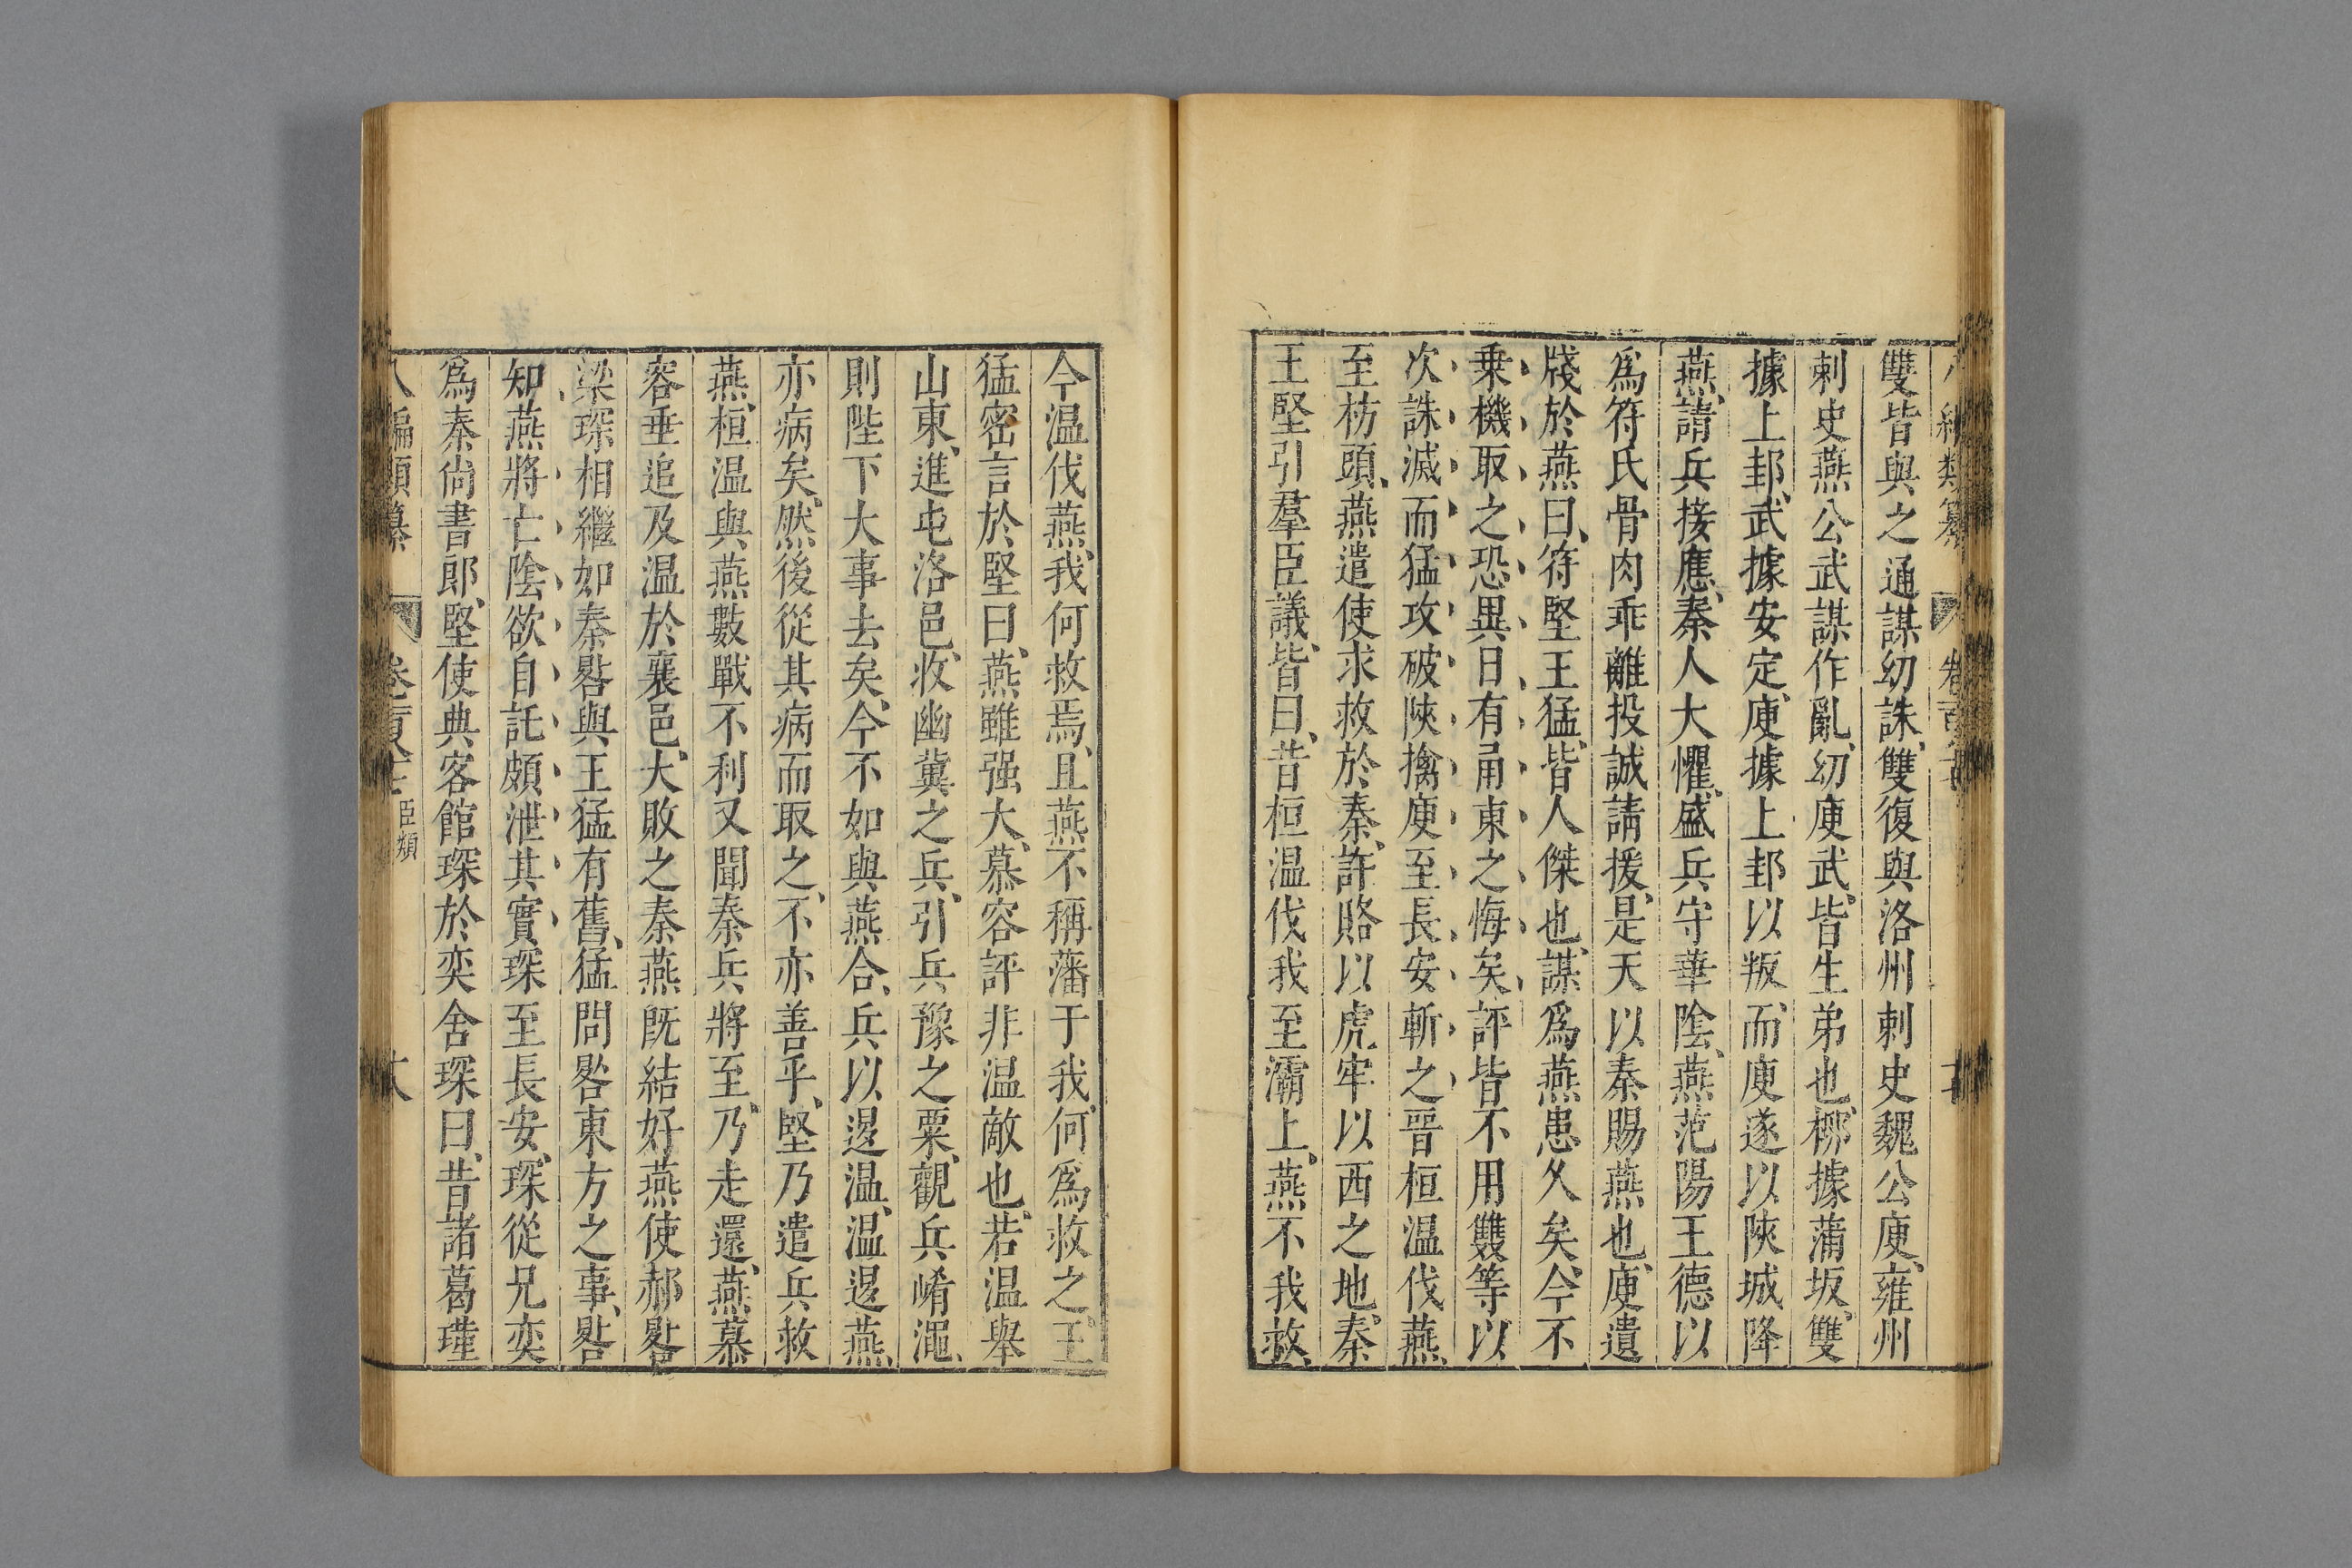 雙皆與之通謀幼誅雙復與洛州刺史魏公庾雍州
刺史燕公武謀作亂幼庾武皆生弟也柳據蒲坂雙
據上邽武據安定庾據上邽以叛而庾遂以陝城降
燕請兵接應秦人大懼盛兵守華陰燕范陽王德以
爲符氏骨肉乖離投誠請援是天以秦賜燕也庾遺
牋於燕曰符堅王猛皆人傑也謀爲燕患久矣今不
乗機取之恐異日有甬東之悔矣評皆不用雙等以
次誅滅而猛攻破陝擒庾至長安斬之晉桓温伐燕
至枋頭燕遣使求救於秦許賂以虎牢以西之地秦
王堅引羣臣議皆曰昔桓温伐我至灞上燕不我救
今温伐燕我何救焉且燕不稱藩于我何爲救之王
猛密言於堅曰燕雖强大慕容評非温敵也若温舉
山東進屯洛邑收幽冀之兵引兵豫之粟觀兵崤澠
則陛下大事去矣今不如與燕合兵以退温温退燕
亦病矣然後從其病而取之不亦善乎堅乃遣兵救
燕桓温與燕數戰不利又聞秦兵將至乃走還燕慕
容垂追及温於襄邑大敗之秦燕既結好燕使郝晷
梁琛相繼如秦晷與王猛有舊猛問晷東方之事晷
知燕將亡陰欲自託頗泄其實琛至長安琛從兄奕
爲秦尚書郎堅使典客館琛於奕舍琛曰昔諸葛瑾
八編類纂 臣類